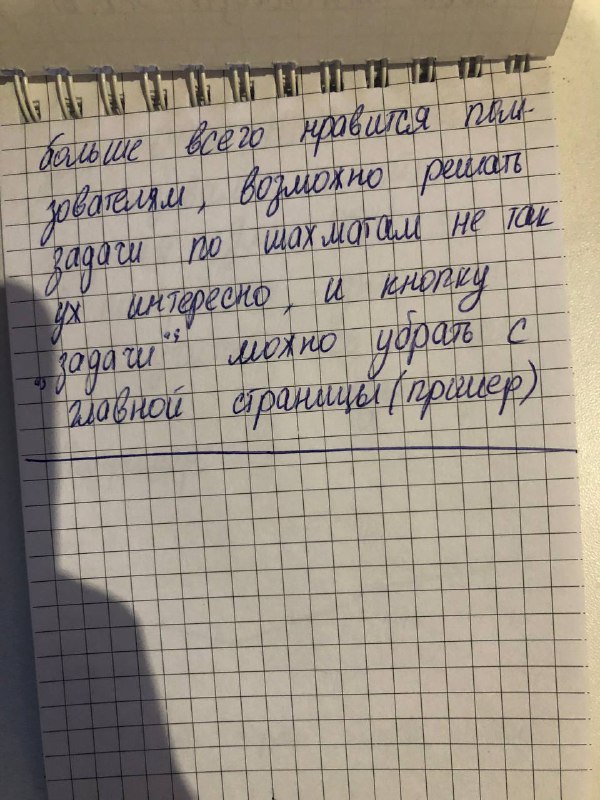 больше всего нравится поль-
зователям, возможно решать
задачи по шахматам не так
ух интересно, и кнопку
"задачи" можно убрать с
главной страницы (пример)